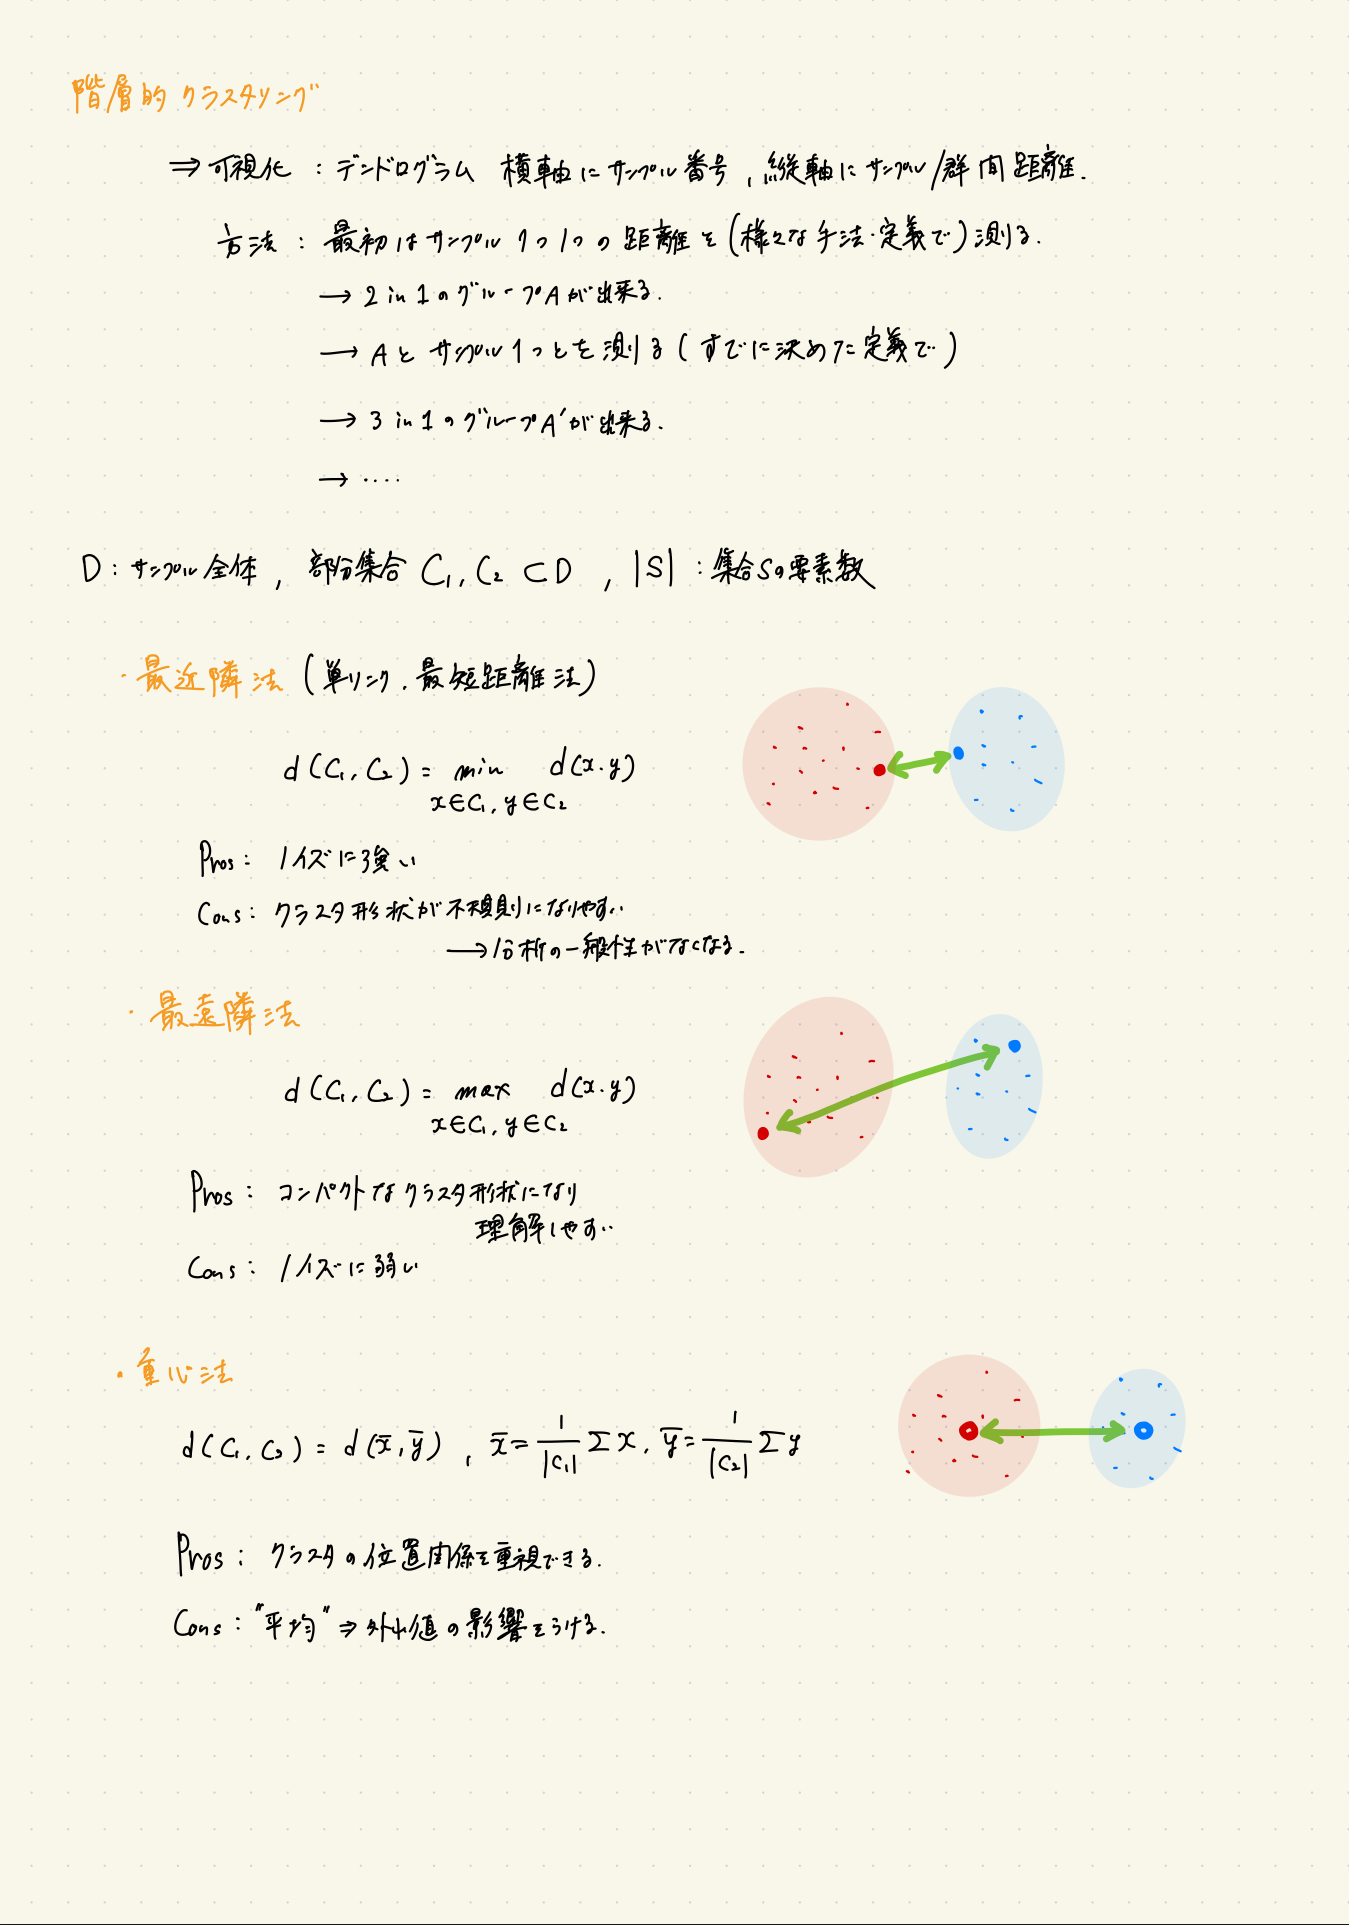 階層的クラスタリング
⇒ 可視化 : デンドログラム 横軸にサンプル番号, 縦軸にサンプル/群間距離.
方法 : 最初はサンプル1つ1つの距離を(様々な手法・定義で)測る.
→ 2 in 1 のグループAが出来る.
→ Aとサンプル1つとを測る(すでに決めた定義で)
→ 3 in 1 のグループA'が出来る.
→ ....
D : サンプル全体, 部分集合 C₁, C₂ ⊂ D , |S| : 集合Sの要素数
・最近隣法 (単リンク, 最短距離法)
d(C₁, C₂) = min d(x.y)
x∈C₁, y∈C₂
Pros : ノイズに強い
Cons : クラスタ形状が不規則になりやすい
→ 分析の一般性がなくなる.
・最遠隣法
d(C₁, C₂) = max d(x.y)
x∈C₁, y∈C₂
Pros : コンパクトなクラスタ形状になり
理解しやすい
Cons : ノイズに弱い
・重心法
d(C₁, C₂) = d(x̄, ȳ) , x̄ = 1/|C₁| Σx, ȳ = 1/|C₂| Σy
Pros : クラスタの位置関係を重視できる.
Cons : "平均" ⇒ 外れ値の影響をうける.